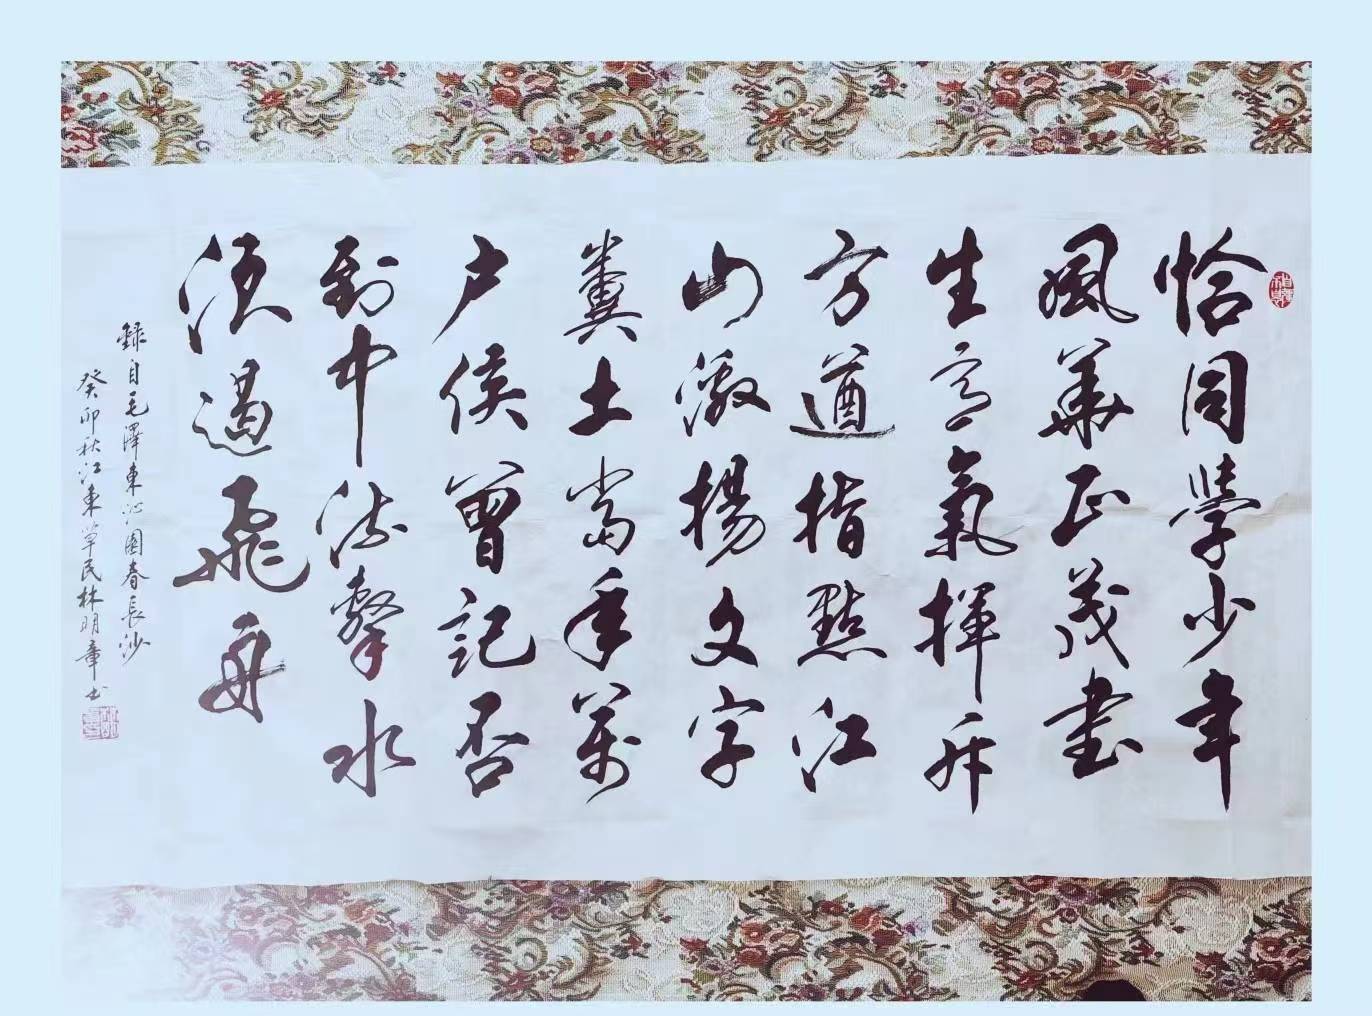 恰同學少年
風華正茂書
生意氣揮斥
方遒指點江
山激揚文字
糞土當年萬
户侯曾記否
到中流擊水
浪遏飛舟
錄自毛澤東沁園春長沙
癸卯秋江東草民林明章书